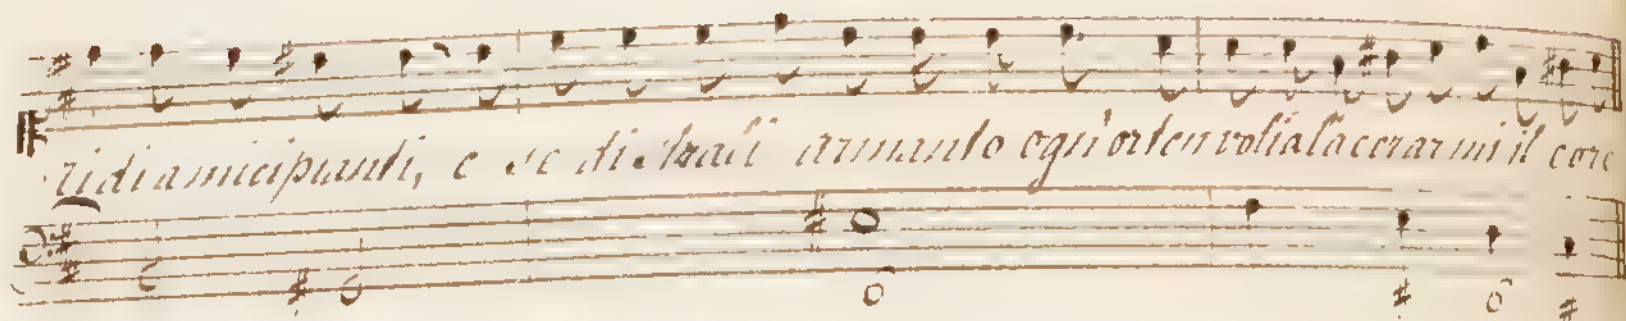 ridi amici pianti, e se di strali armanto ogn'or ten voli a lacerarmi il core
6 6
6 6